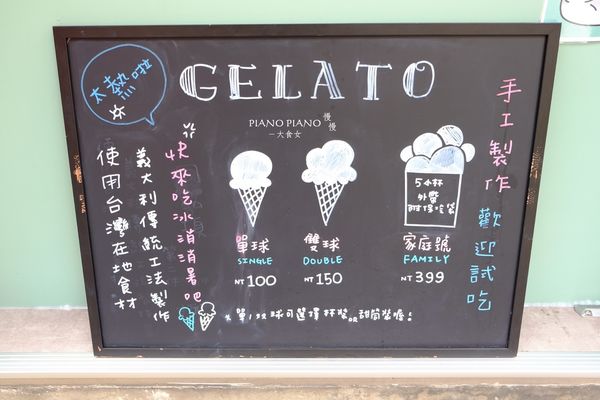 太熱啦
GELATO
PIANO PIANO 慢慢
一大食女
手工製作 歡迎試吃
快來吃冰消消暑吧
義大利傳統工法製作
使用台灣在地食材
單球
SINGLE
NT 100
雙球
DOUBLE
NT 150
5小杯
外帶
附保冷袋
家庭號
FAMILY
NT 399
*單/雙球可選擇杯裝or甜筒裝喔!